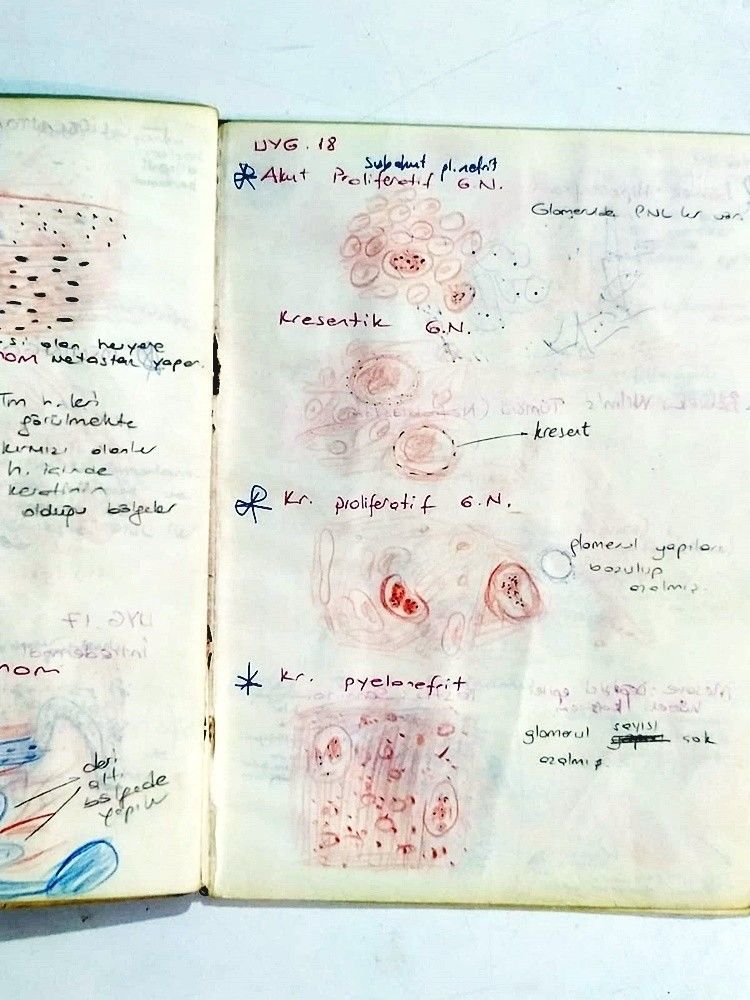 si olan heryere
nom metastaz yapar.
Tm h. leri
görülmekte
kırmızı olanlar
h. içinde
keratinin
olduğu bölgeler
nom
deri
altı
bölgede
UYG. 18
subakut
Akut Proliferatif G.N.
Glomerulde PNL ler var.
Kresentik G.N.
kresent
Kr. proliferatif G.N.
glomerul yapıları
bozulup
azalmış.
Kr. pyelonefrit
glomerul sayısı çok
azalmış.
UYG. 17